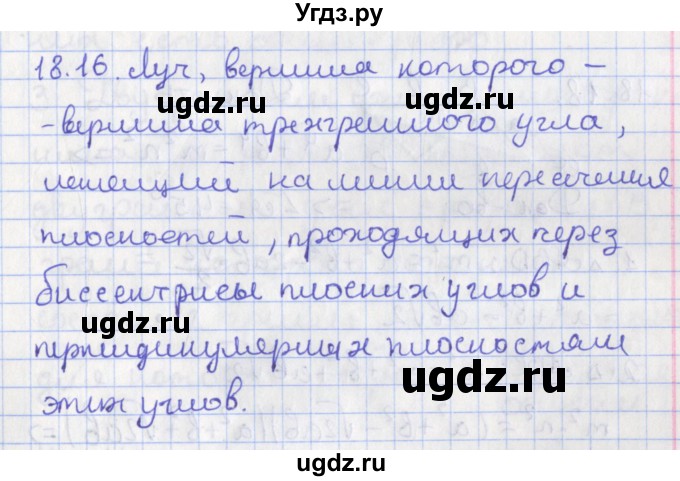 Угдз.ру
18.16. Луч, вершина которого –
ugdz.ru ugdz.ru
-вершина трехгранного угла,
лежащий на линии пересечения
ugdz.ru
плоскостей, проходящих через
биссектрисы плоских углов и
ugdz.ru
перпендикулярных плоскостям
ugdz.ru
этих углов.
ugdz.ru